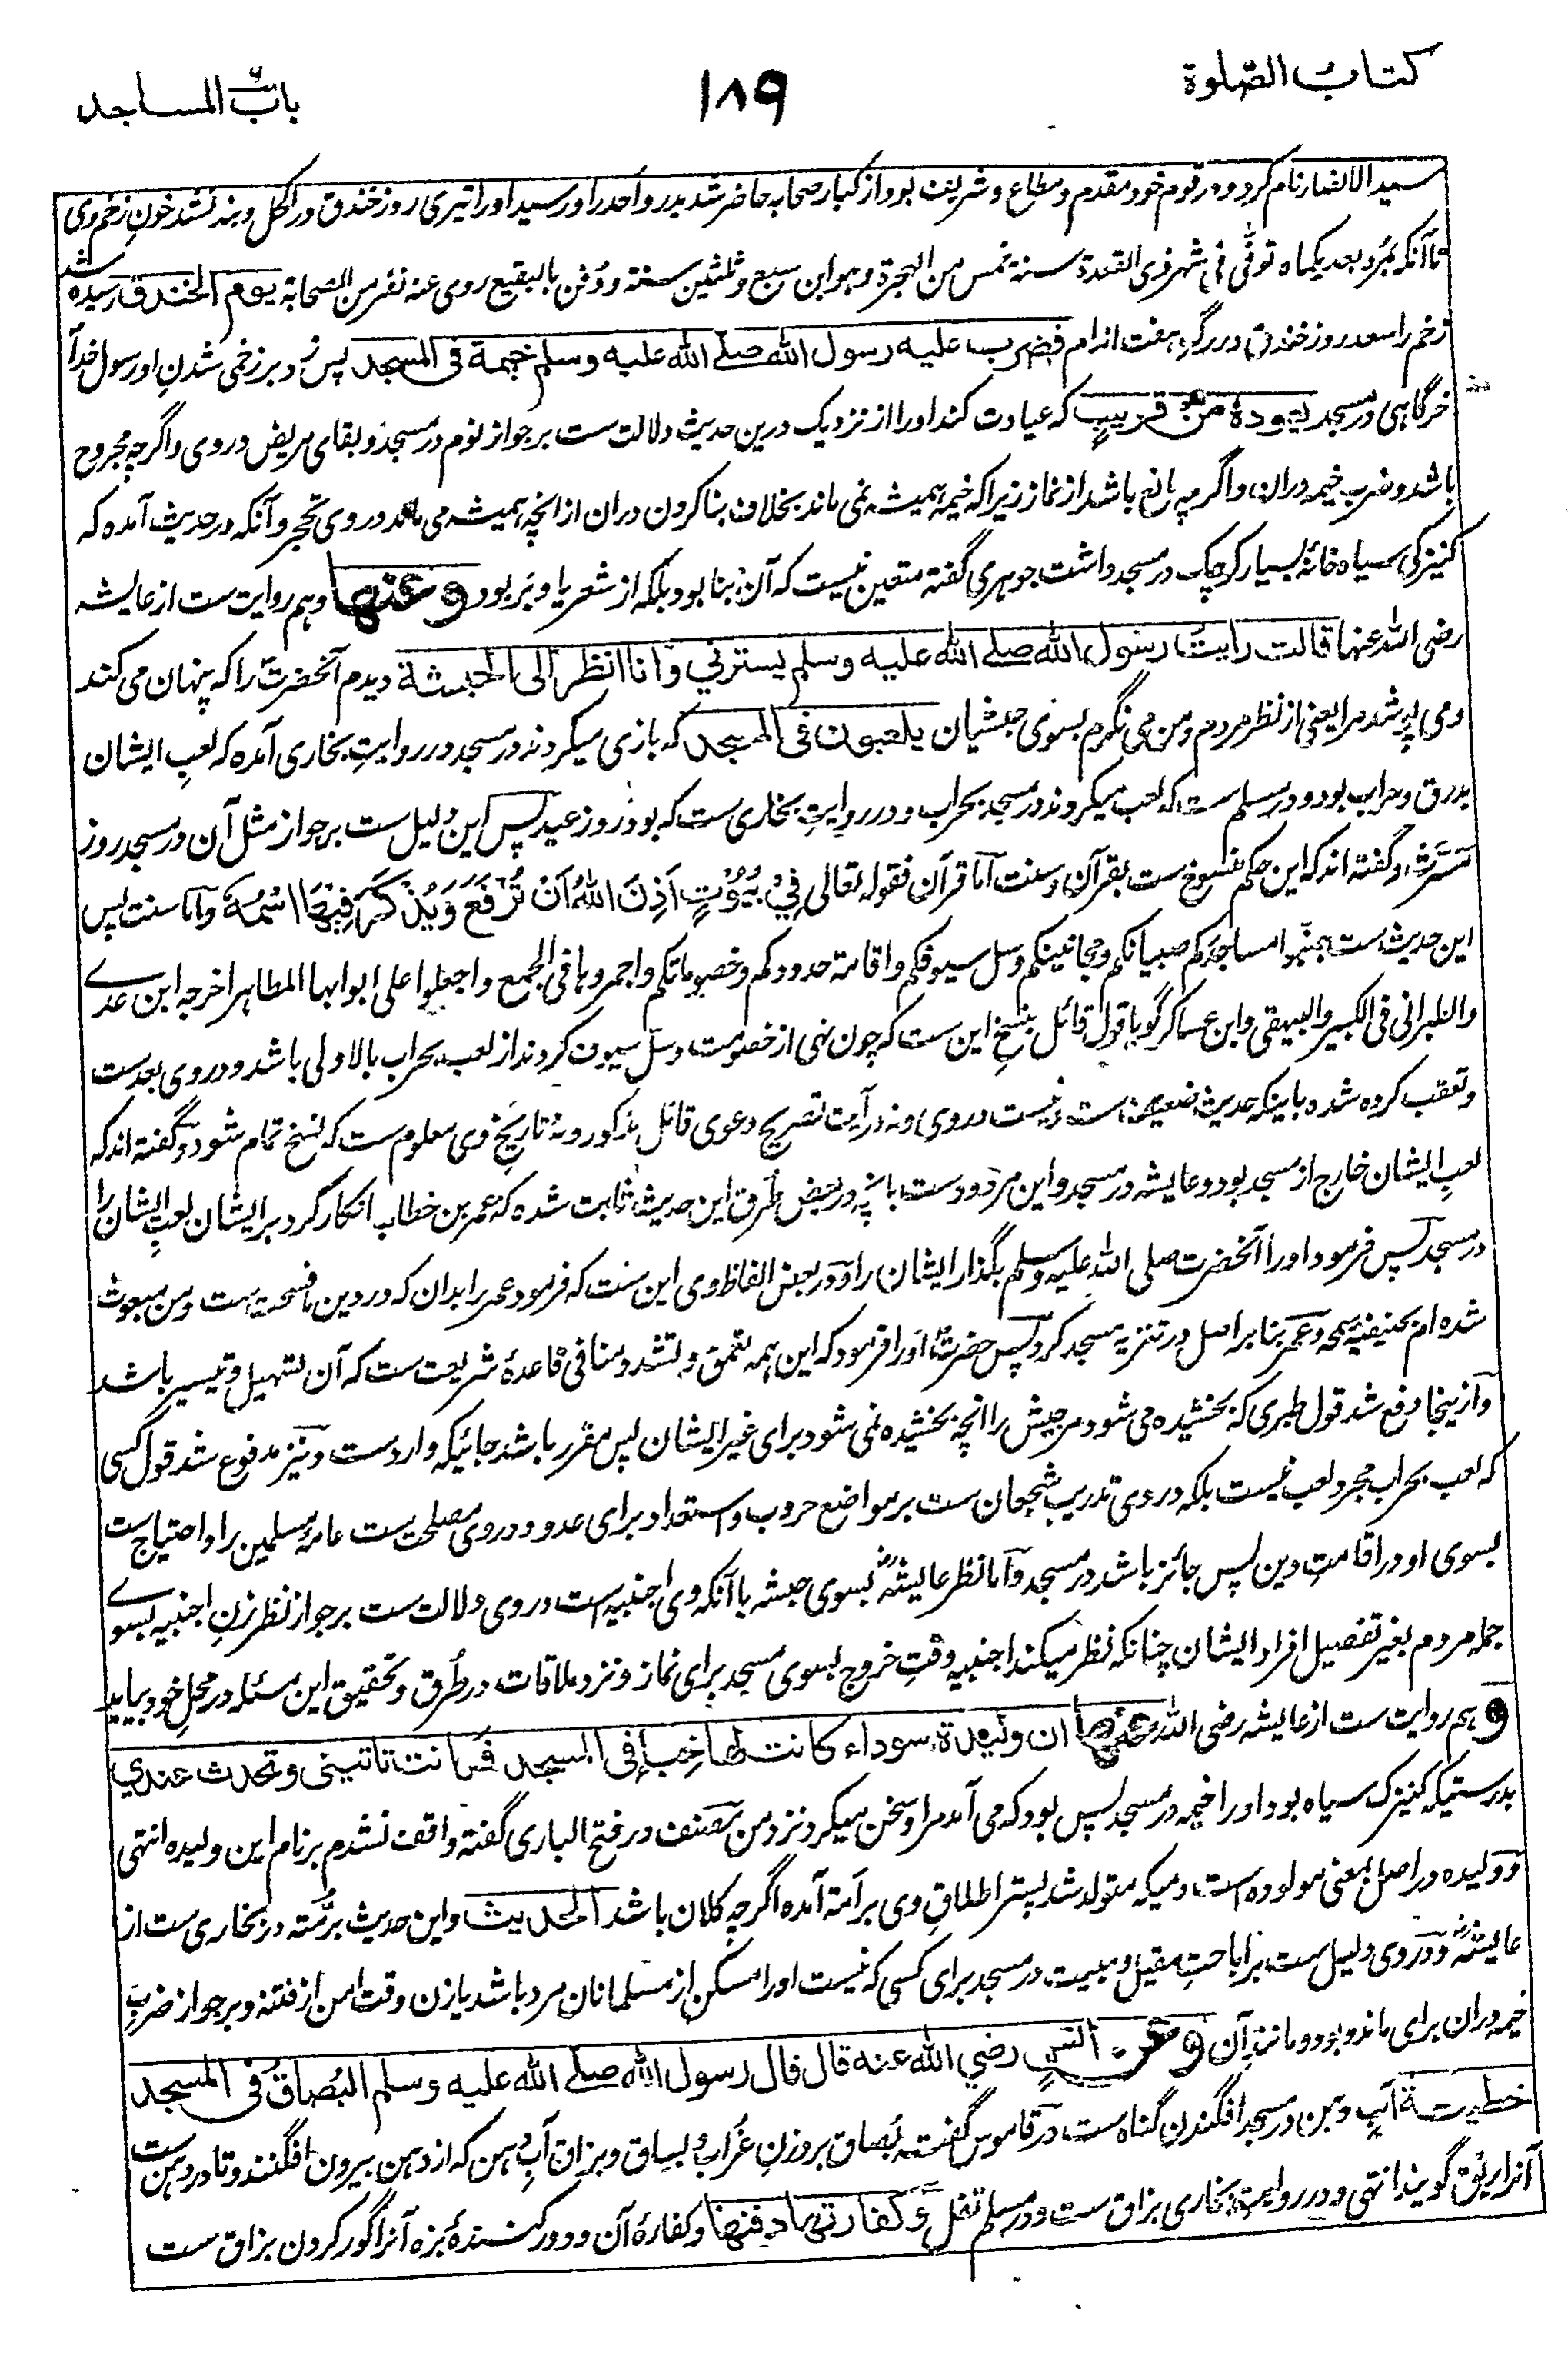 كتاب الصّلوة
۱۸۹
باب المساجد
سید الانصار نام کرد و در قوم خود مقدم و مطاع و شریف بود از کبار صحابه حاضر شد بدر و اُحد را و رسید او را تیری روز خندق در اکحل و بند نشد خونِ زخم وی
تا آنکه بمُرد بعد یکماه توفّی فی شهر ذی القعدة سنة خمس من الهجرة و هو ابن سبع و ثلثین سنة و دُفن بالبقیع روی عنه نفر من الصحابة یوم الخندق رسیده شد
زخم را سعد روز خندق در رگ هفت اندام فضرب علیه رسول الله صلے الله علیه وسلم خیمة فی المسجد پس زد بر زخمی شدنِ او رسول خدا
خرگاهی در مسجد لیعودهٗ من قریبٍ که عیادت کند او را از نزدیک درین حدیث دلالت ست بر جواز نوم در مسجد و بقای مریض در وی و اگرچه مجروح
باشد و ضرب خیمه دران و اگرچه مانع باشد از نماز زیرا که خیمه همیشه نمی ماند بخلاف بنا کردن دران از انچه همیشه می ماند و در وی تحجر و آنکه در حدیث آمده که
کنیزکی سیاه خانهٔ بسیار کوچک در مسجد داشت جوهری گفته متعین نیست که آن بنا بود بلکه از شعر یا وبَر بود وعنها و هم روایت ست از عایشه
رضی الله عنها قالت رایت رسول الله صلے الله علیه وسلم یسترنی وانا انظر الی الحبشة دیدم آنحضرت را که پنهان می کند
و می پوشد مرا یعنی از نظر مردم و من می نگرم بسوی حبشیان یلعبون فی المسجد که بازی میکردند در مسجد و در روایتِ بخاری آمده که لعبِ ایشان
بدرق و حراب بود و در مسلم ست که لعب میکردند در مسجد بحراب و در روایتِ بخاری ست که بود روز عید پس این دلیل ست بر جواز مثل آن در مسجد روز
مسرّت و گفته اند که این حکم منسوخ ست بقرآن و سنت اما قرآن فقوله تعالی فِیْ بُیُوْتٍ اَذِنَ اللهُ اَنْ تُرْفَعَ وَیُذْکَرَ فِیْهَا اسْمُهٗ و اما سنت پس
این حدیث ست جنّبوا مساجدکم صبیانکم ومجانینکم وسل سیوفکم واقامة حدودکم وخصوماتکم واجمروها فی الجمع واجعلوا علی ابوابها المطاهر اخرجه ابن عدے
والطبرانی فی الکبیر والبیهقی وابن عساکر گویا قول قائل بنسخ این ست که چون نهی از خصومت و سلّ سیوف کردند از لعب بحراب بالاولی باشد و در وی بعد ست
و تعقب کرده شده باینکه حدیث ضعیف ست و نیست در وی و نه در آیت تصریح دعوی قائل مذکور و نه تاریخ وی معلوم ست که نسخ تمام شود و گفته اند که
لعبِ ایشان خارج از مسجد بود و عایشه در مسجد و این مردود ست بانچه در بعض طرق این حدیث ثابت شده که عمر بن خطاب انکار کرد بر ایشان لعبِ ایشان را
در مسجد پس فرمود او را آنحضرت صلی الله علیه وسلم بگذار ایشان را و در بعض الفاظ وی این ست که فرمود عمر را بدان که در دین ما فسحت ست و من مبعوث
شده ام بحنیفیهٔ سمحه و عمر بنا بر اصل در تنزیه مسجد کرد پس حضرت او را فرمود که این همه تعمق و تشدد منافی قاعدهٔ شریعت ست که آن تسهیل و تیسیر باشد
و از ینجا دفع شد قول طبری که بخشیده می شود مر حبش را انچه بخشیده نمی شود برای غیر ایشان پس مقرر باشد جائیکه وارد ست و نیز مدفوع شد قول کسی
که لعب بحراب مجرد لعب نیست بلکه در وی تدریب شجعان ست بر مواضع حروب و استعداد برای عدو و در وی مصلحت ست عامهٔ مسلمین را و احتیاج ست
بسوی او در اقامتِ دین پس جائز باشد در مسجد و اما نظر عایشه بسوی حبشه با آنکه وی اجنبیه است در وی دلالت ست بر جواز نظر زنِ اجنبیه بسوے
جمله مردم بغیر تفصیل افراد ایشان چنانکه نظر میکند اجنبیه وقتِ خروج بسوی مسجد برای نماز و نزد ملاقات در طُرق و تحقیق این مسئله در محلِ خود بیاید
و هم روایت ست از عایشه رضی الله عنها ان ولیدة سوداء کانت لها خباء فی المسجد فکانت تاتینی وتحدث عندی
بدرستیکه کنیزک سیاه بود او را خیمه در مسجد پس بود که می آمد مرا و سخن میکرد نزد من مصنف در فتح الباری گفته واقف نشدم بر نام این ولیده انتهی
و ولیده در اصل بمعنی مولوده است دمیکه متولد شد پستر اطلاق وی بر اَمة آمده اگرچه کلان باشد الحدیث و این حدیث برُمّته در بخاری ست از
عایشه و در وی دلیل ست بر اباحتِ مقیل و مبیت در مسجد برای کسی که نیست او را مسکن از مسلمانان مرد باشد یا زن وقت امن از فتنه و بر جواز ضربِ
خیمه دران برای ماند و بود و مانندِ آن وعن انسٍ رضی الله عنه قال قال رسول الله صلے الله علیه وسلم البُصاق فی المسجد
خطیئة آبِ دهن در مسجد افگندن گناه ست در قاموس گفته بُصاق بر وزنِ غُراب و بساق و بزاق آبِ دهن که از دهن بیرون افگنند و تا در دهن ست
آنرا ریق گویند انتهی و در روایتِ بخاری بزاق ست و در مسلم تفل وکفارتها دفنها و کفارهٔ آن و دور کنندهٔ بزه آنرا گور کردن بزاق ست